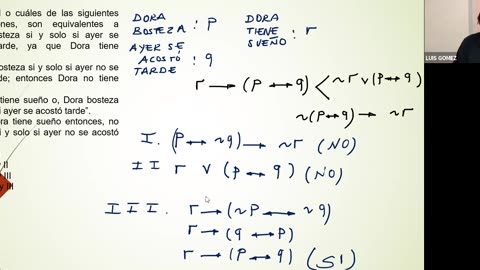 l o cuáles de las siguientes
nes, son equivalentes a
steza si y solo si ayer se
arde, ya que Dora tiene
osteza si y solo si ayer no se
de; entonces Dora no tiene
tiene sueño o, Dora bosteza
i ayer se acostó tarde".
ra tiene sueño entonces, no
si y solo si ayer no se acostó
II
III
y III
DORA
BOSTEZA : P
AYER SE
ACOSTÓ : q
TARDE
DORA
TIENE : r
SUEÑO
r → (P ↔ q) < ~r ∨ (P ↔ q)
~(P ↔ q) → ~r
I. (P ↔ ~q) → ~r (NO)
II r ∨ (P ↔ q) (NO)
III. r → (~P ↔ ~q)
r → (q ↔ P)
r → (P ↔ q) (SI)
LUIS GOMEZ